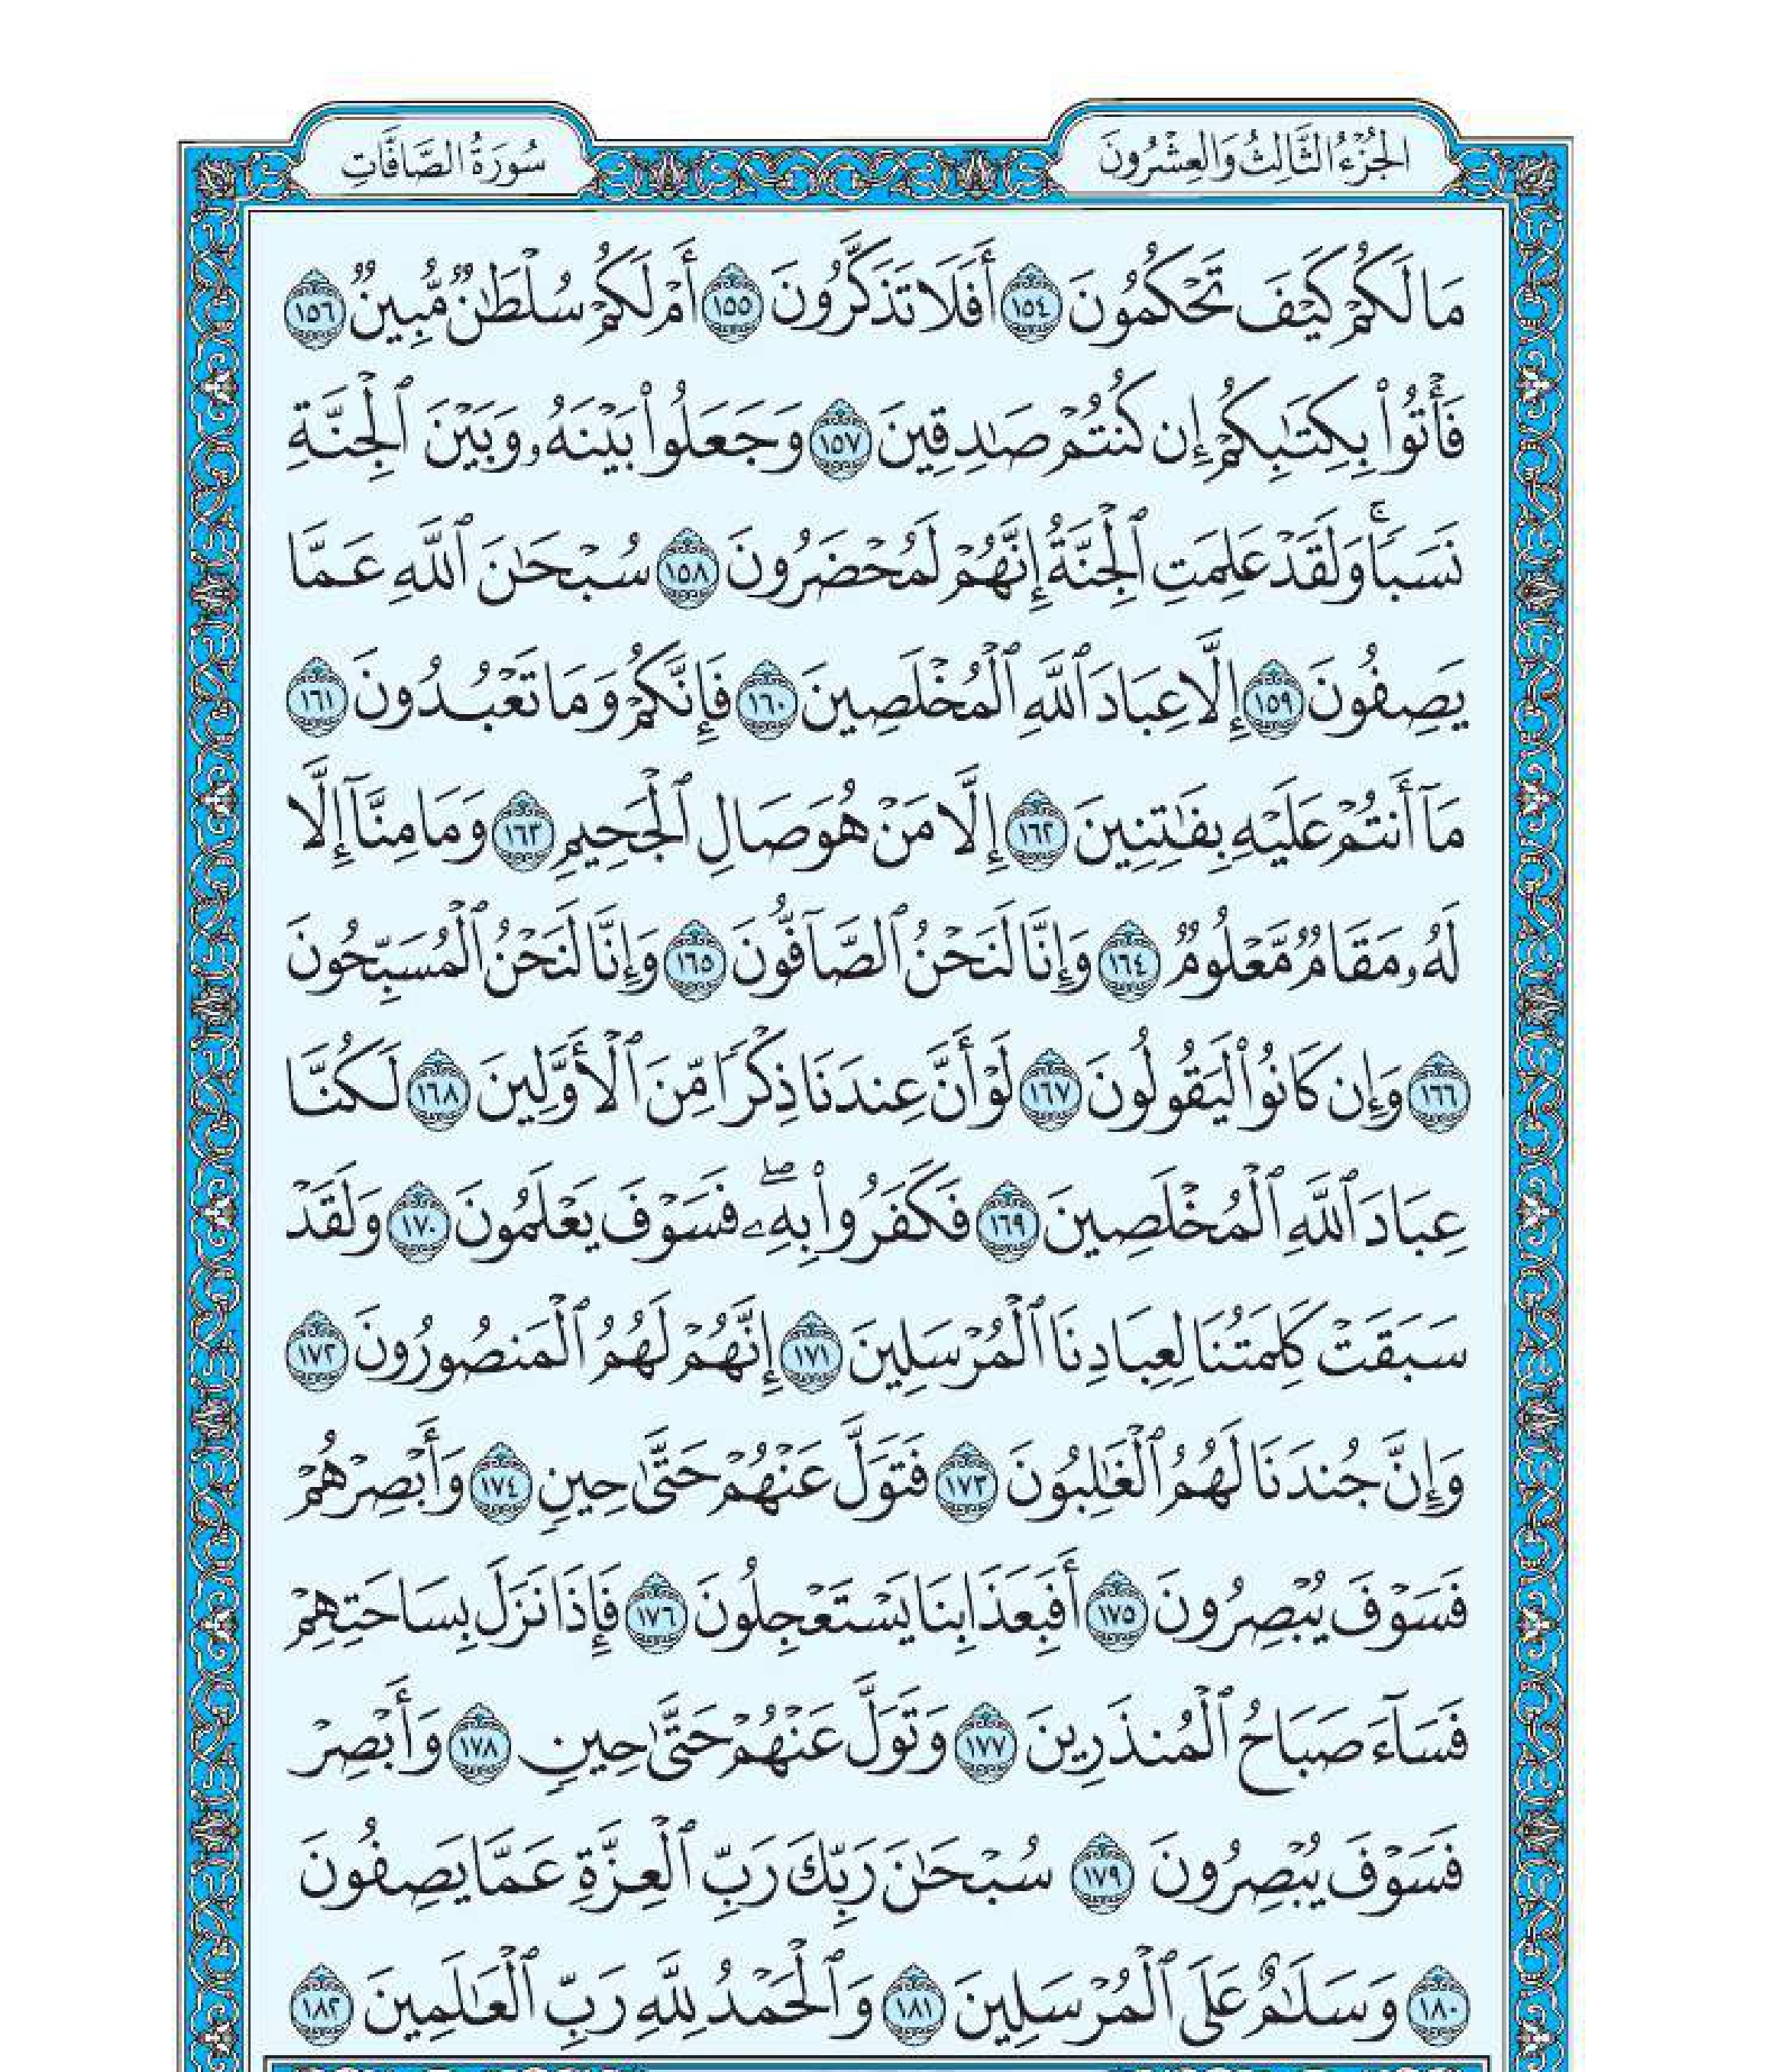 الجُزْءُ الثَّالِثُ وَالعِشْرُونَ
سُورَةُ الصَّافَّاتِ
مَا لَكُمْ كَيْفَ تَحْكُمُونَ ١٥٤ أَفَلَا تَذَكَّرُونَ ١٥٥ أَمْ لَكُمْ سُلْطَٰنٌ مُّبِينٌ ١٥٦
فَأْتُوا۟ بِكِتَٰبِكُمْ إِن كُنتُمْ صَٰدِقِينَ ١٥٧ وَجَعَلُوا۟ بَيْنَهُۥ وَبَيْنَ ٱلْجِنَّةِ
نَسَبًا ۚ وَلَقَدْ عَلِمَتِ ٱلْجِنَّةُ إِنَّهُمْ لَمُحْضَرُونَ ١٥٨ سُبْحَٰنَ ٱللَّهِ عَمَّا
يَصِفُونَ ١٥٩ إِلَّا عِبَادَ ٱللَّهِ ٱلْمُخْلَصِينَ ١٦٠ فَإِنَّكُمْ وَمَا تَعْبُدُونَ ١٦١
مَآ أَنتُمْ عَلَيْهِ بِفَٰتِنِينَ ١٦٢ إِلَّا مَنْ هُوَ صَالِ ٱلْجَحِيمِ ١٦٣ وَمَا مِنَّآ إِلَّا
لَهُۥ مَقَامٌ مَّعْلُومٌ ١٦٤ وَإِنَّا لَنَحْنُ ٱلصَّآفُّونَ ١٦٥ وَإِنَّا لَنَحْنُ ٱلْمُسَبِّحُونَ
١٦٦ وَإِن كَانُوا۟ لَيَقُولُونَ ١٦٧ لَوْ أَنَّ عِندَنَا ذِكْرًا مِّنَ ٱلْأَوَّلِينَ ١٦٨ لَكُنَّا
عِبَادَ ٱللَّهِ ٱلْمُخْلَصِينَ ١٦٩ فَكَفَرُوا۟ بِهِۦ ۖ فَسَوْفَ يَعْلَمُونَ ١٧٠ وَلَقَدْ
سَبَقَتْ كَلِمَتُنَا لِعِبَادِنَا ٱلْمُرْسَلِينَ ١٧١ إِنَّهُمْ لَهُمُ ٱلْمَنصُورُونَ ١٧٢
وَإِنَّ جُندَنَا لَهُمُ ٱلْغَٰلِبُونَ ١٧٣ فَتَوَلَّ عَنْهُمْ حَتَّىٰ حِينٍ ١٧٤ وَأَبْصِرْهُمْ
فَسَوْفَ يُبْصِرُونَ ١٧٥ أَفَبِعَذَابِنَا يَسْتَعْجِلُونَ ١٧٦ فَإِذَا نَزَلَ بِسَاحَتِهِمْ
فَسَآءَ صَبَاحُ ٱلْمُنذَرِينَ ١٧٧ وَتَوَلَّ عَنْهُمْ حَتَّىٰ حِينٍ ١٧٨ وَأَبْصِرْ
فَسَوْفَ يُبْصِرُونَ ١٧٩ سُبْحَٰنَ رَبِّكَ رَبِّ ٱلْعِزَّةِ عَمَّا يَصِفُونَ
١٨٠ وَسَلَٰمٌ عَلَى ٱلْمُرْسَلِينَ ١٨١ وَٱلْحَمْدُ لِلَّهِ رَبِّ ٱلْعَٰلَمِينَ ١٨٢